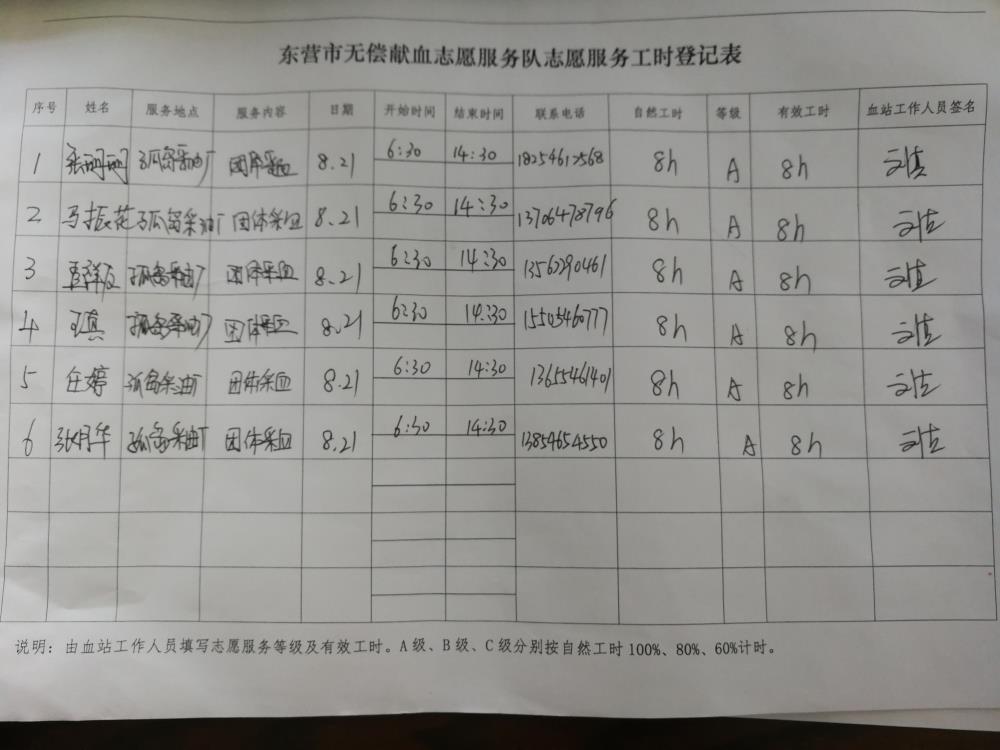 东营市无偿献血志愿服务队志愿服务工时登记表
序号 姓名 服务地点 服务内容 日期 开始时间 结束时间 联系电话 自然工时 等级 有效工时 血站工作人员签名
1 张珊珊 孤岛采油厂 团体采血 8.21 6:30 14:30 18254612568 8h A 8h
2 马振花 孤岛采油厂 团体采血 8.21 6:30 14:30 13706478796 8h A 8h
3 孤岛采油厂 团体采血 8.21 6:30 14:30 13562290461 8h A 8h
4 王真 孤岛采油厂 团体采血 8.21 6:30 14:30 15505460777 8h A 8h
5 任婷 孤岛采油厂 团体采血 8.21 6:30 14:30 13655461401 8h A 8h
6 张明华 孤岛采油厂 团体采血 8.21 6:30 14:30 13854654550 8h A 8h
说明：由血站工作人员填写志愿服务等级及有效工时。A级、B级、C级分别按自然工时100%、80%、60%计时。